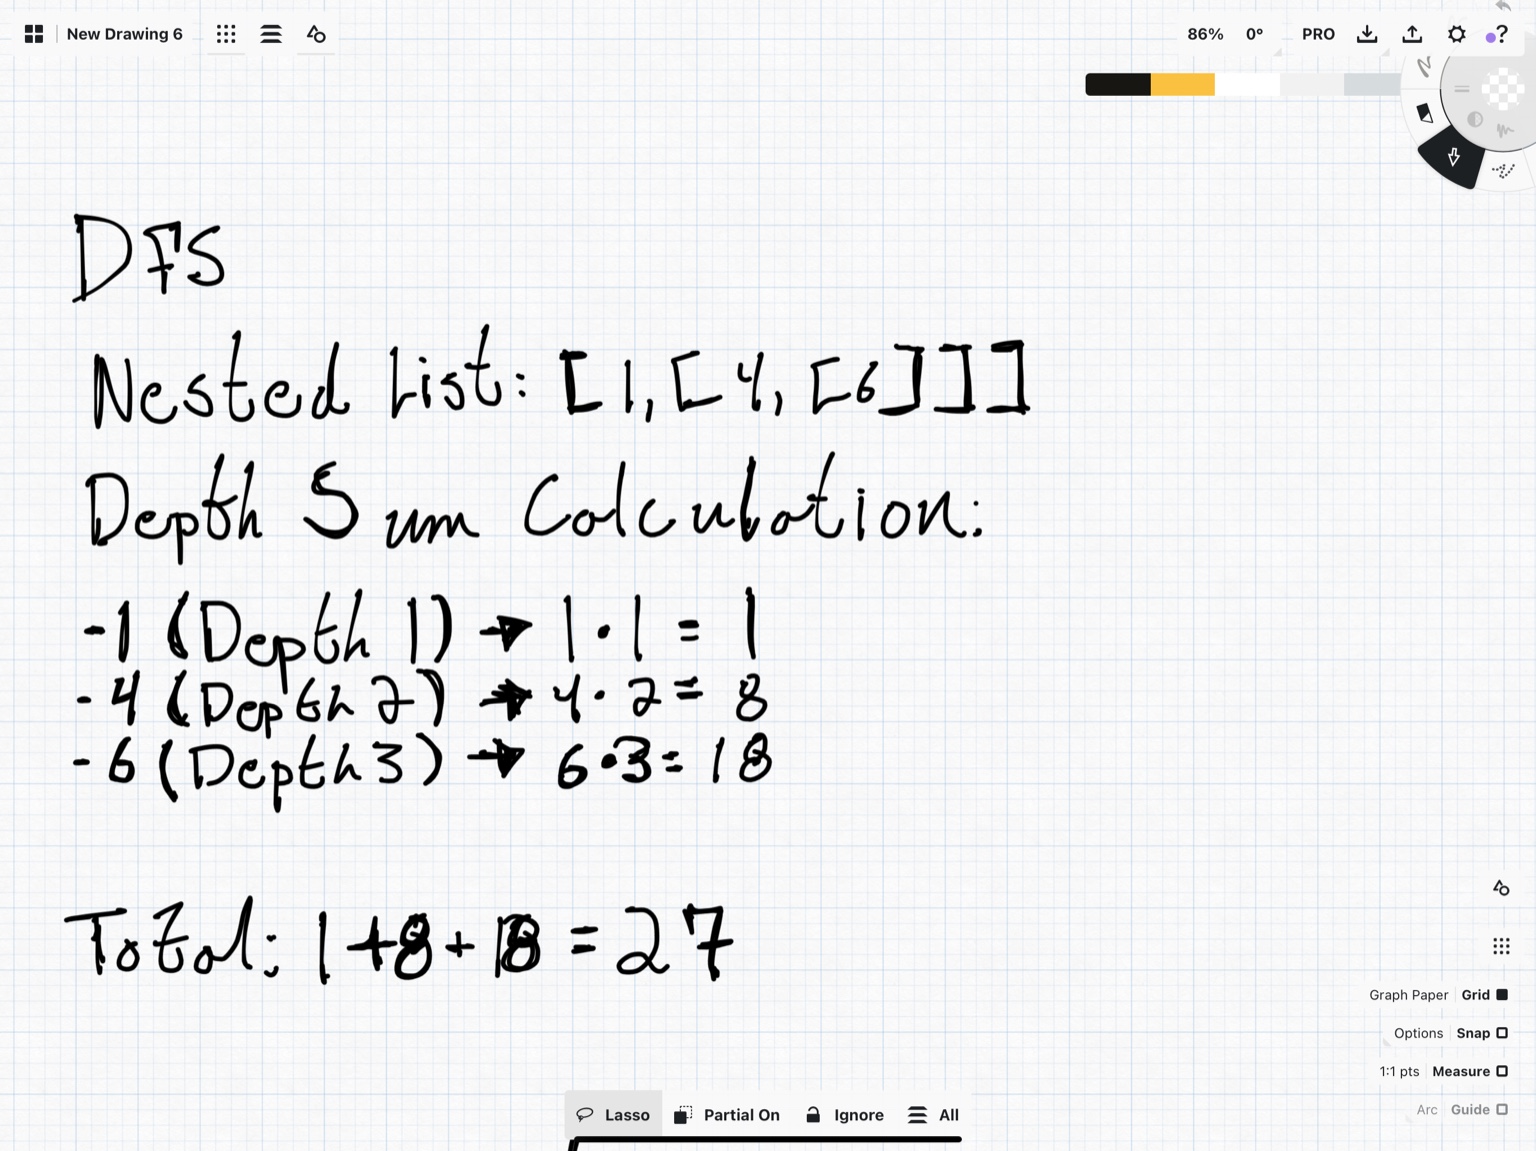 New Drawing 6
86% 0° PRO ?
DFS
Nested List: [1,[4,[6]]]
Depth Sum Calculation:
-1 (Depth 1) → 1·1 = 1
-4 (Depth 2) → 4·2 = 8
-6 (Depth 3) → 6·3 = 18
Total: 1+8+18 = 27
Graph Paper Grid
Options Snap
1:1 pts Measure
Arc Guide
Lasso Partial On Ignore All